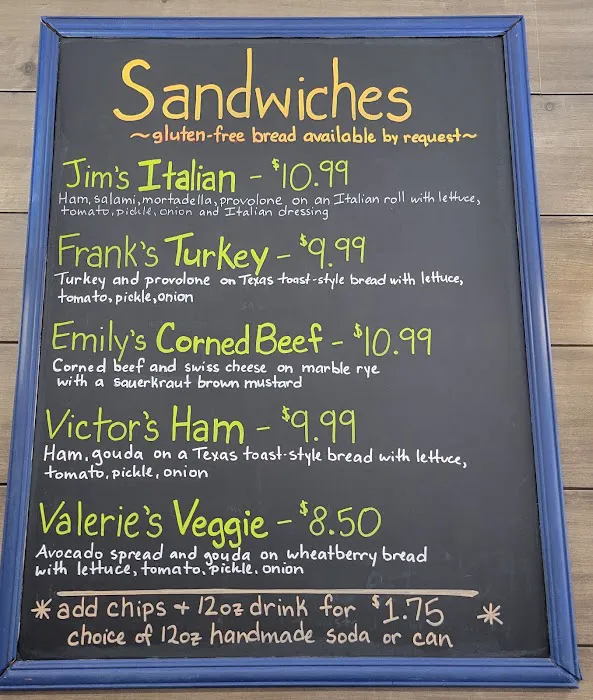 Sandwiches
~gluten-free bread available by request~
Jim's Italian - $10.99
Ham, salami, mortadella, provolone on an Italian roll with lettuce,
tomato, pickle, onion and Italian dressing
Frank's Turkey - $9.99
Turkey and provolone on Texas toast-style bread with lettuce,
tomato, pickle, onion
Emily's Corned Beef - $10.99
Corned beef and swiss cheese on marble rye
with a sauerkraut brown mustard
Victor's Ham - $9.99
Ham, gouda on a Texas toast-style bread with lettuce,
tomato, pickle, onion
Valerie's Veggie - $8.50
Avocado spread and gouda on wheatberry bread
with lettuce, tomato, pickle, onion
* add chips + 12oz drink for $1.75 *
choice of 12oz handmade soda or can